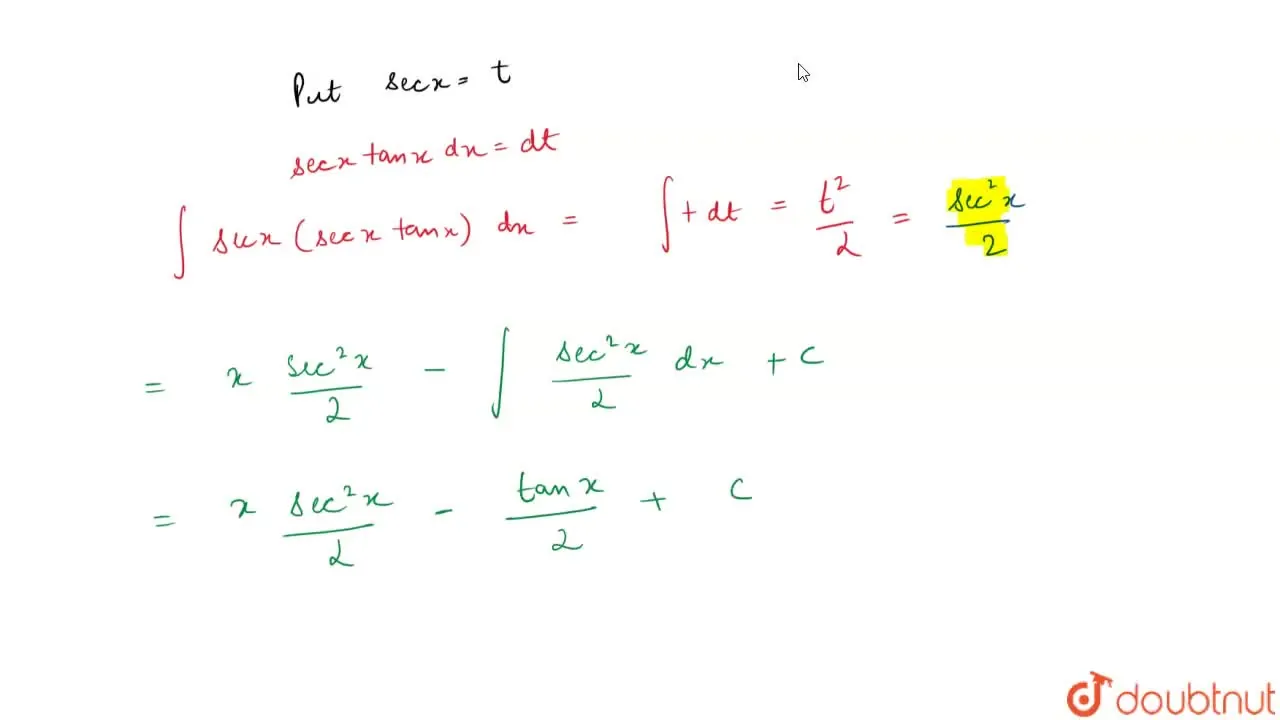 Put sec x = t
sec x tan x dx = dt
∫ sec x (sec x tan x) dx = ∫ t dt = t²/2 = sec²x/2
= x sec²x/2 - ∫ sec²x/2 dx + c
= x sec²x/2 - tan x/2 + c
doubtnut